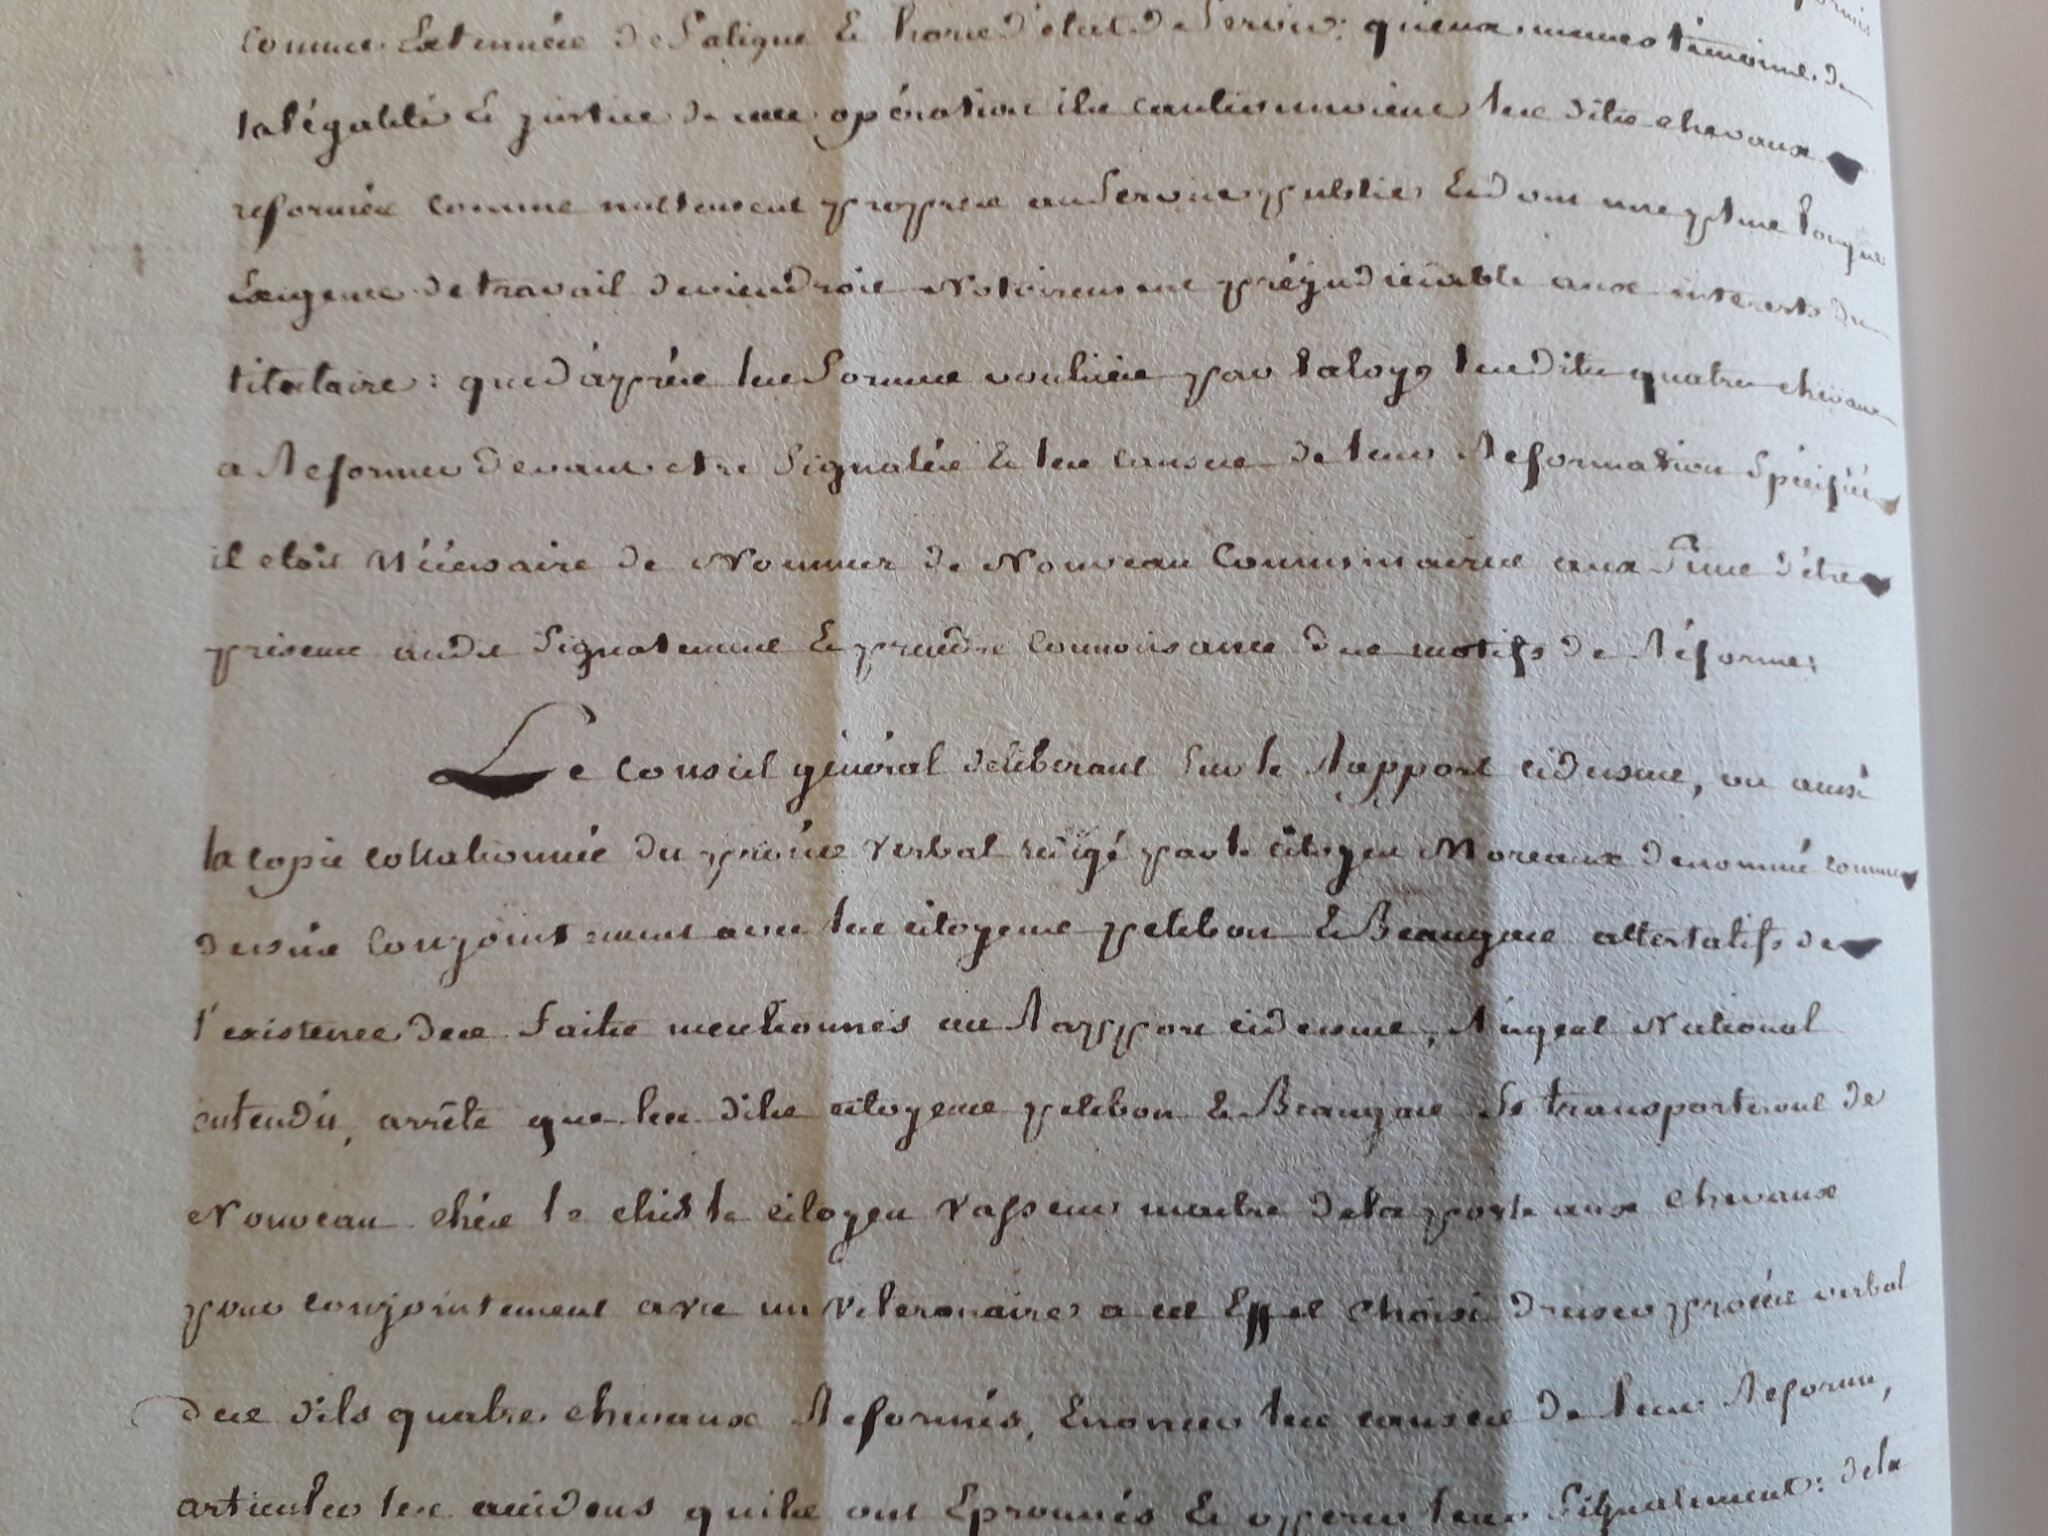 comme Extenuées de Fatigue & hors d'etat de Service: qu'eux mêmes témoins de
la légalité & justice de cette opération ils cautionnoient les dits chevaux
reformés comme nullement propres au Service public Et dont une plus longue
Exigence de travail deviendroit Notoirement préjudiciable aux interets du
titulaire : que d'après les formes voulues par la loy, les dits quatre chevaux
a Reformer devant etre Signalés & les causes de leur Reformation Spécifiées
il etoit Nécessaire de Nommer de Nouveau Commissaires aux fins d'être
présents au dit Signalement & prendre connoissance des motifs de Réforme,
Le Conseil général deliberant Sur le Rapport cidessus, vu aussi
la copie collationnée du procès verbal redigé par le citoyen Moreaux denommé comme
dessus conjointement avec les citoyens petitbon & Beaugas attestatifs de
l'existence des Faits mentionnés au Rapport cidessus, l'agent National
entendu, arrête que les dits citoyens petitbon & Beaugas Se transporteront de
Nouveau chés le le citoyen Vasseur maitre de la poste aux chevaux
pour conjointement avec un veteronaire a cet Effet choisi dresser procès verbal
des dits quatre chevaux Reformés, Enoncer les causes de leur Reforme,
articuler les accidens qu'ils ont Eprouvés & opérer leur Signalement: de la